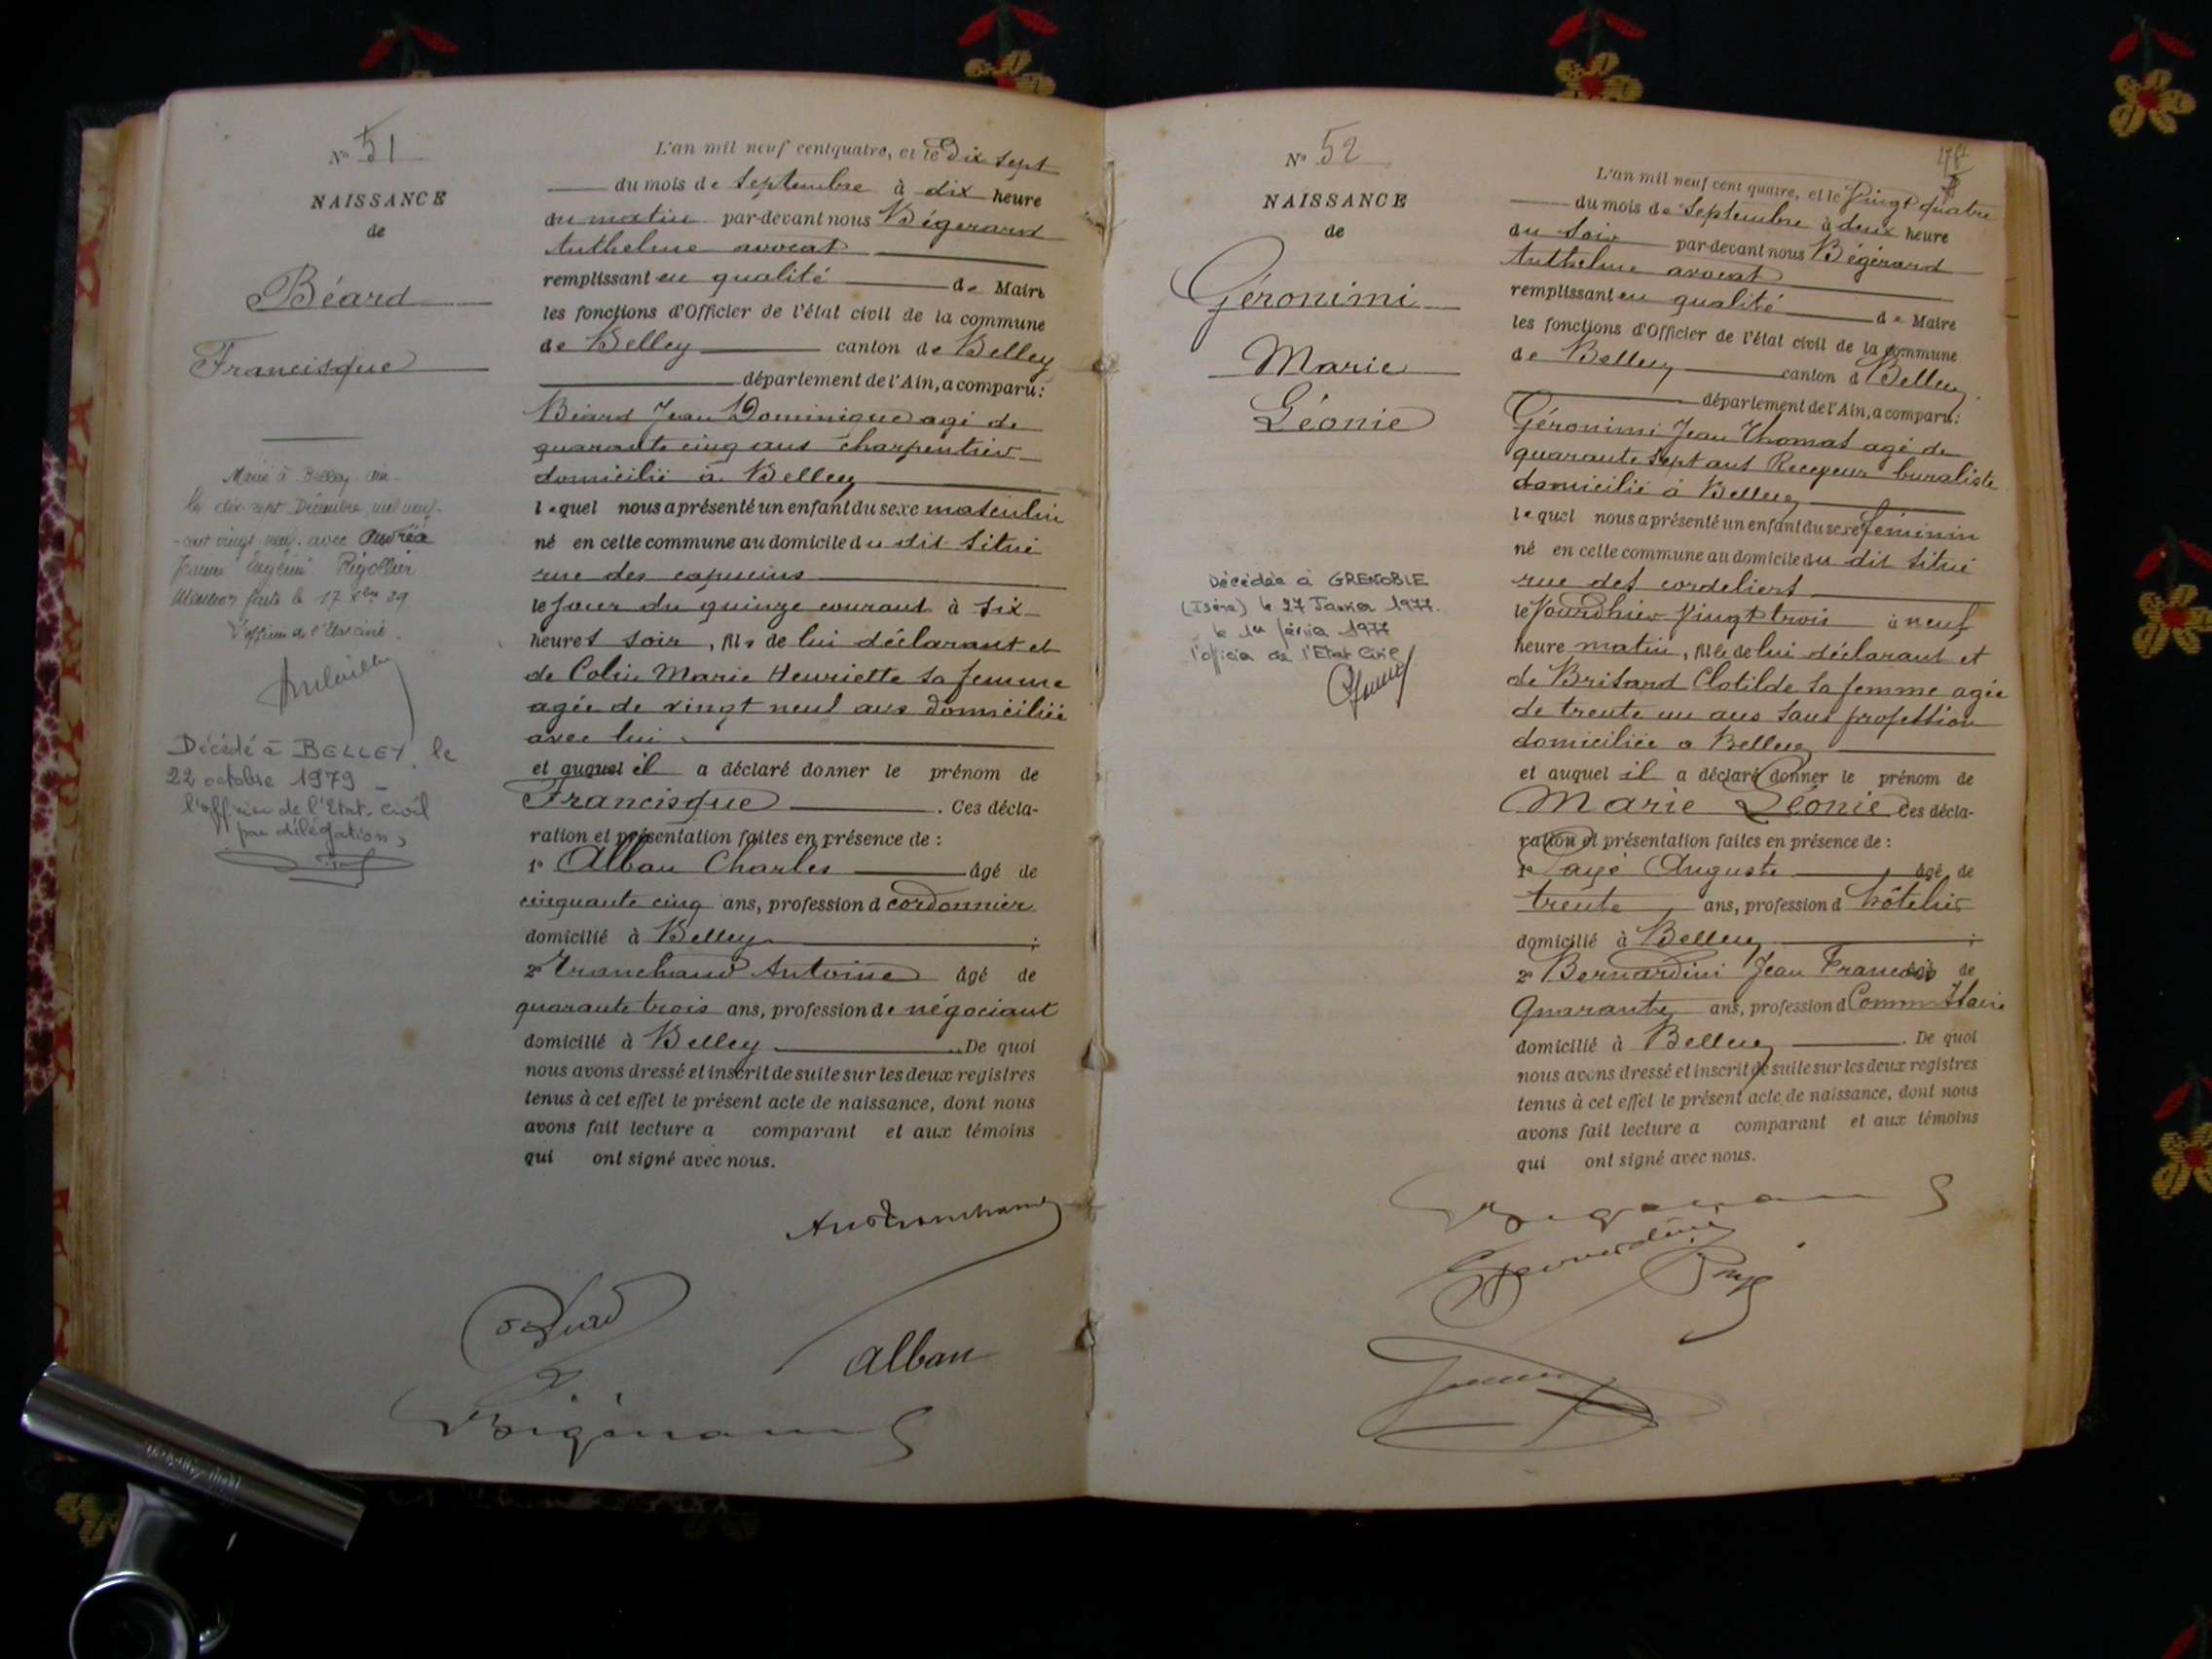 N° 51
NAISSANCE
de
Béard
Francisque
Marié à Belley Ain
le dix sept Décembre mil neuf
cent vingt neuf avec Andréa
Jeanne Eugénie Rigollier
Mention faite le 17 Xbre 29
L'officier de l'Etat civil
Décédé à BELLEY, le
22 octobre 1979 -
l'officier de l'Etat-civil
par délégation,
L'an mil neuf cent quatre, et le Dix sept
du mois de Septembre à dix heure
du matin par-devant nous Bégerard
Anthelme avocat
remplissant en qualité de Maire
les fonctions d'Officier de l'état civil de la commune
de Belley canton de Belley
département de l'Ain, a comparu :
Béard Jean Dominique agé de
quarante cinq ans charpentier
domicilié à Belley
lequel nous a présenté un enfant du sexe masculin
né en cette commune au domicile du dit situé
rue des capucins
le jour du quinze courant à six
heures soir, fils de lui déclarant et
de Colin Marie Henriette sa femme
agée de vingt neuf ans domiciliée
avec lui
et auquel il a déclaré donner le prénom de
Francisque . Ces décla-
ration et présentation faites en présence de :
1° Alban Charles âgé de
cinquante cinq ans, profession d cordonnier
domicilié à Belley ;
2° Tranchand Antoine âgé de
quarante trois ans, profession de négociant
domicilié à Belley . De quoi
nous avons dressé et inscrit de suite sur les deux registres
tenus à cet effet le présent acte de naissance, dont nous
avons fait lecture a comparant et aux témoins
qui ont signé avec nous.
Ant Tranchand
Béard
Alban
Bégerard
N° 52
NAISSANCE
de
Géronimi
Marie
Léonie
Décédée à GRENOBLE
(Isère) le 27 Janvier 1977.
le 1er février 1977
l'officier de l'Etat Civil
L'an mil neuf cent quatre, et le Vingt quatre
du mois de Septembre à deux heure
du soir par-devant nous Bégérard
Anthelme avocat
remplissant en qualité de Maire
les fonctions d'Officier de l'état civil de la commune
de Belley canton d Belley
département de l'Ain, a comparu :
Géronimi Jean Thomas agé de
quarante sept ans Receveur buraliste
domicilié à Belley
lequel nous a présenté un enfant du sexe féminin
né en cette commune au domicile du dit situé
rue des cordeliers
le jourdhier Vingt trois à neuf
heure matin, fille de lui déclarant et
de Brisard Clotilde sa femme agée
de trente un ans sans profession
domiciliée a Belley
et auquel il a déclaré donner le prénom de
Marie Léonie Ces décla-
ration et présentation faites en présence de :
1° Payé Auguste âgé de
trente ans, profession d hôtelier
domicilié à Belley ;
2° Bernardini Jean Francois de
Quarante ans, profession d Commissaire
domicilié à Belley . De quoi
nous avons dressé et inscrit de suite sur les deux registres
tenus à cet effet le présent acte de naissance, dont nous
avons fait lecture a comparant et aux témoins
qui ont signé avec nous.
Bégerard
Bernardini
Payé